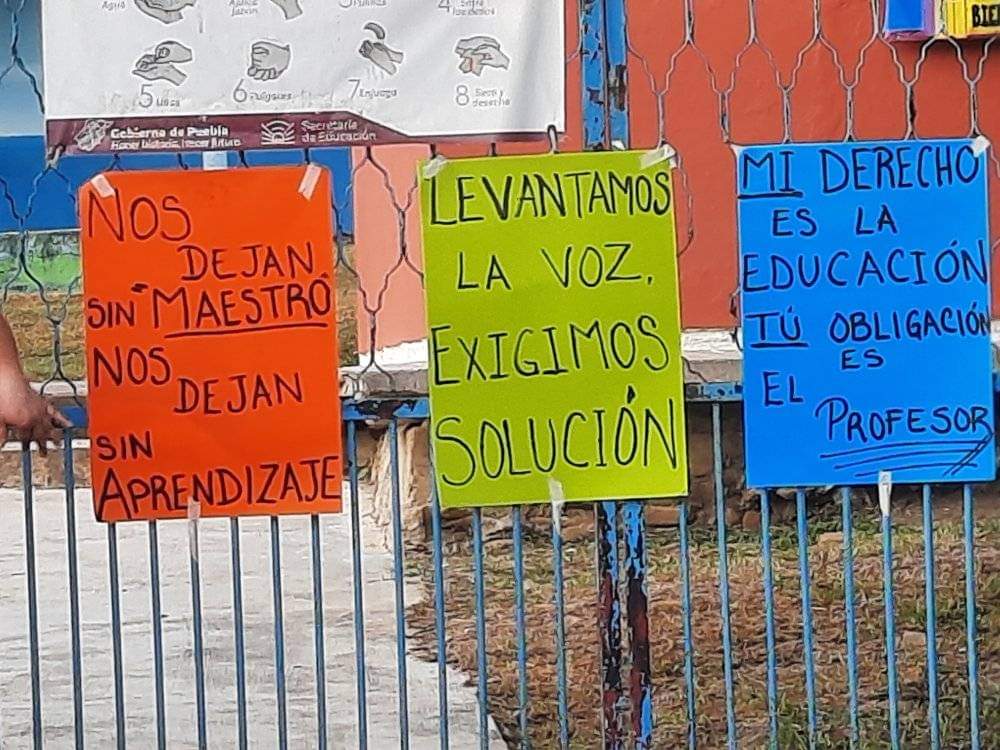 5
6 Pulgares
7 Enjuaga
8 Seca y
desecha
Gobierno de Puebla
Hacer historia. Hacer futuro.
Secretaría
de Educación
NOS
DEJAN
SIN "MAESTRO"
NOS
DEJAN
SIN
APRENDIZAJE
LEVANTAMOS
LA VOZ.
EXIGIMOS
SOLUCIÓN
MI DERECHO
ES LA
EDUCACIÓN
TÚ OBLIGACIÓN
ES
EL
PROFESOR
BIE